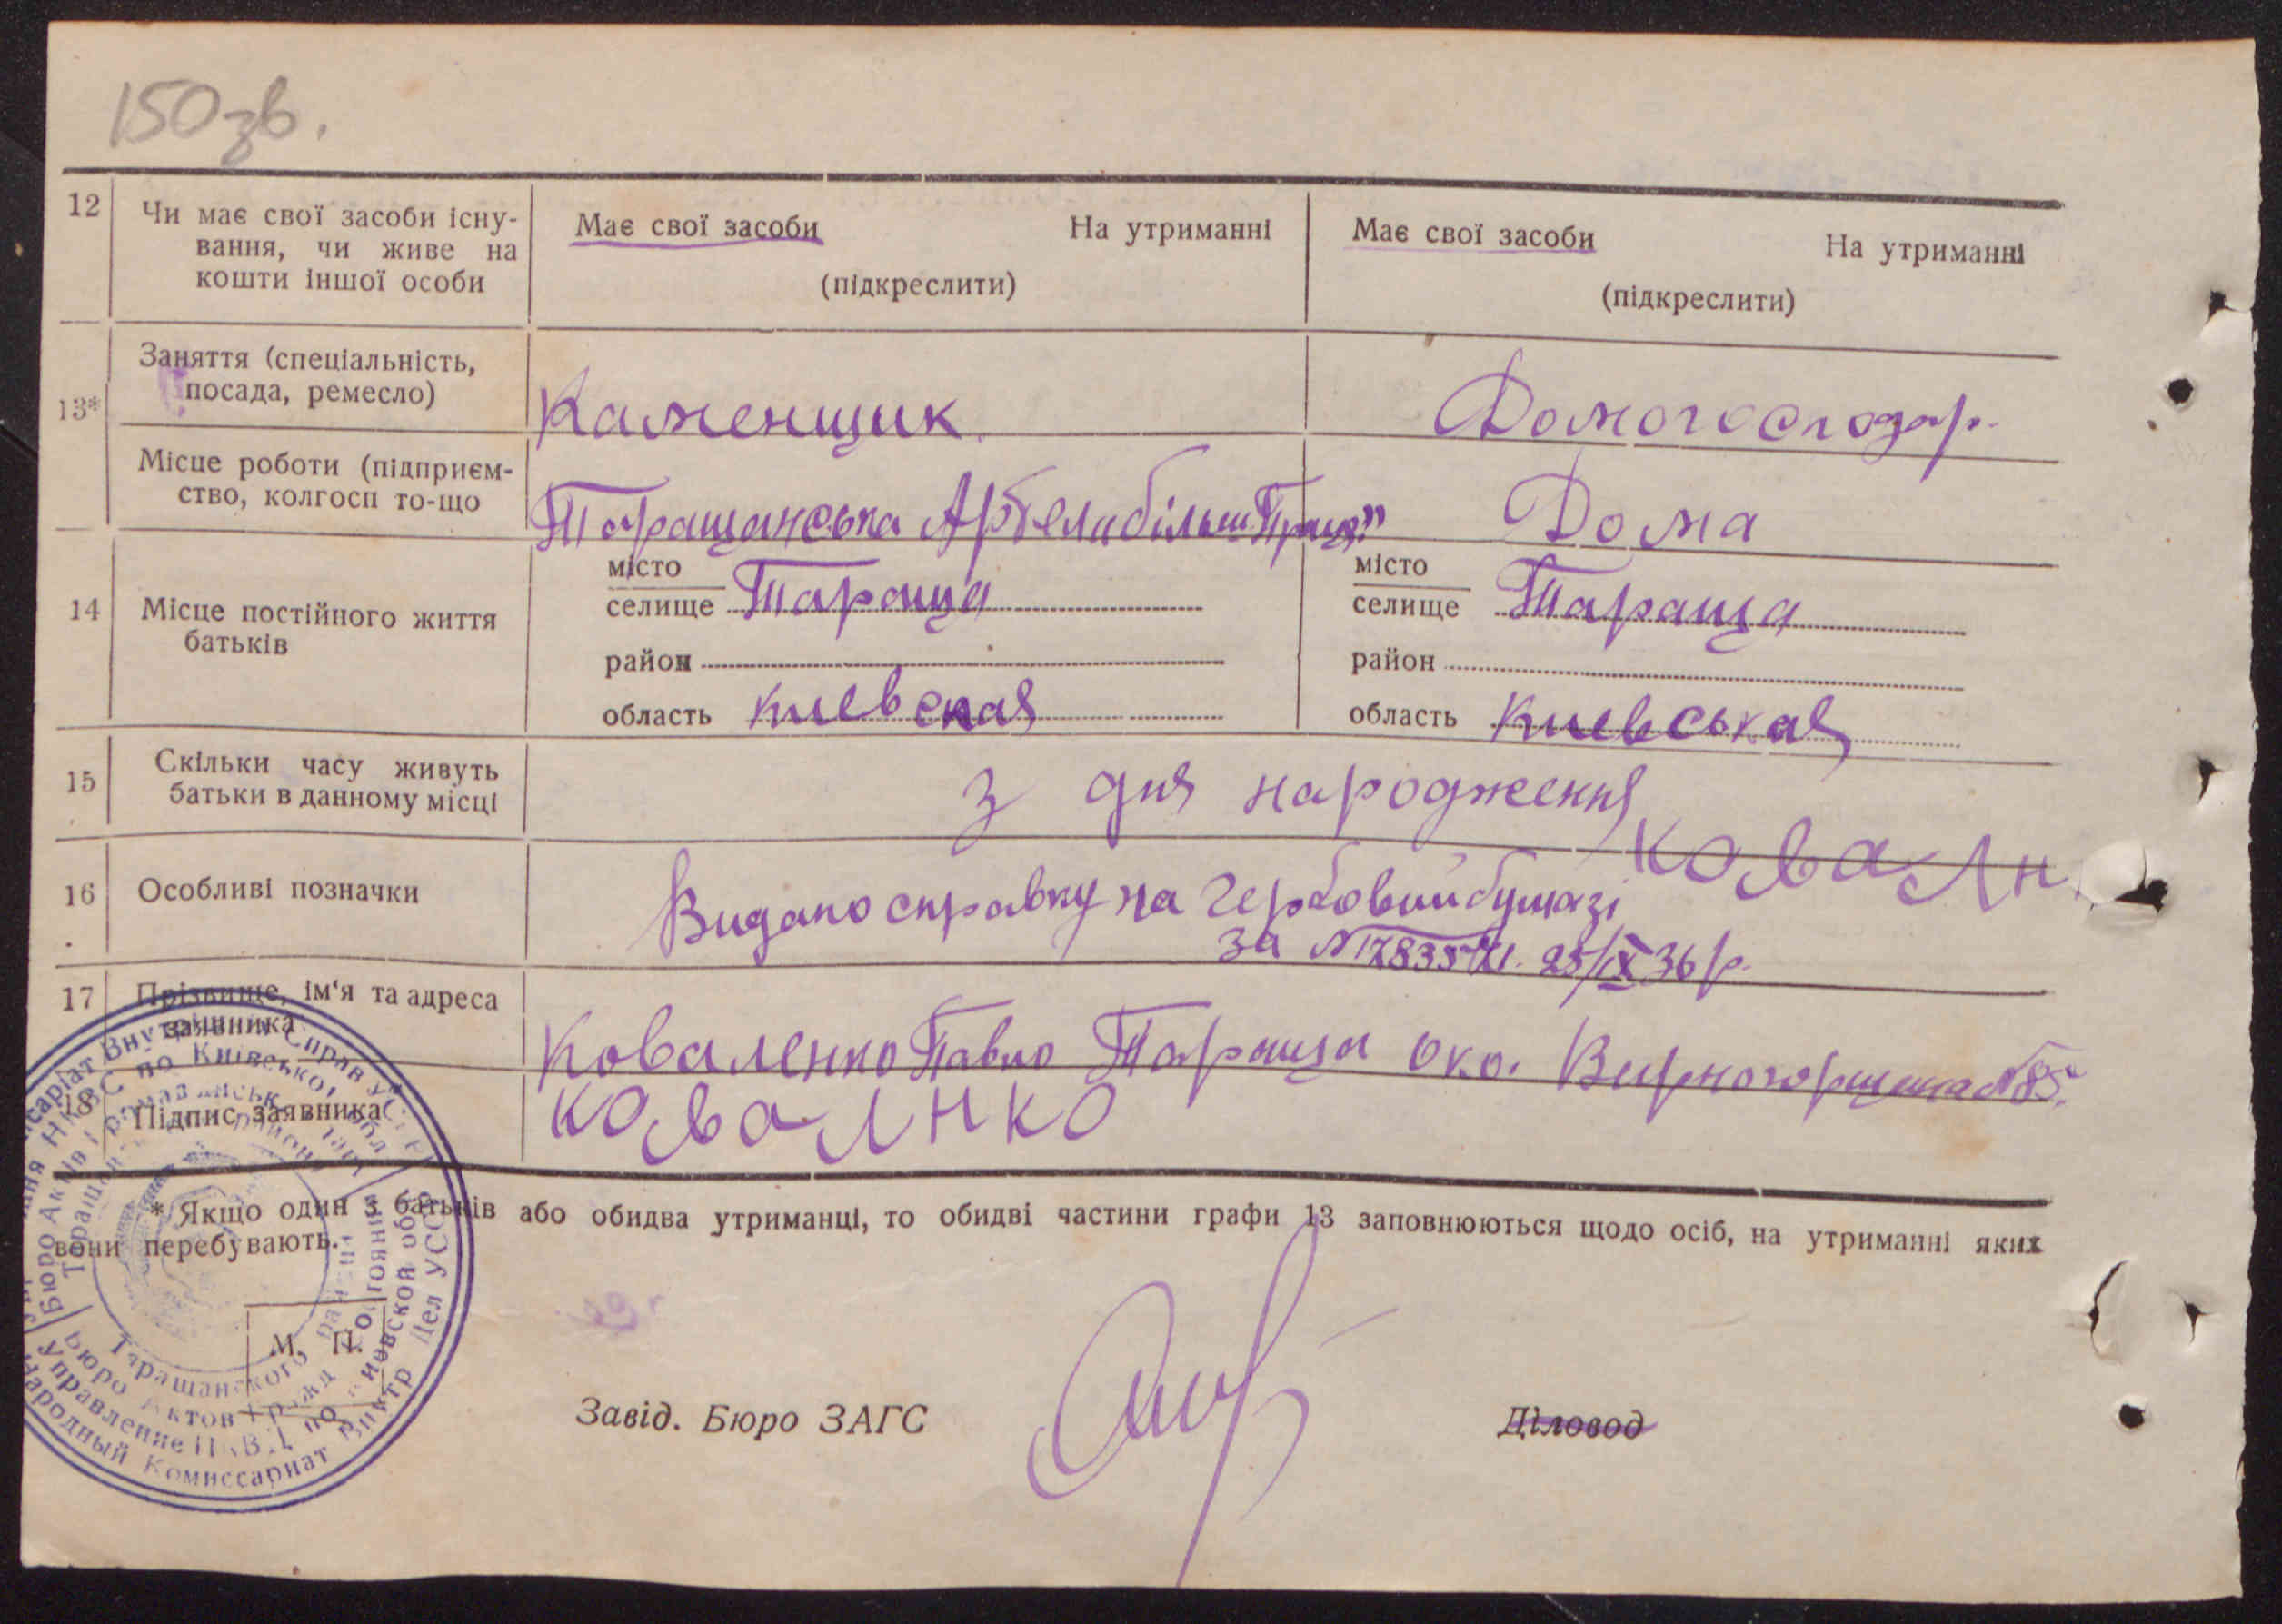 150зв.
12
Чи має свої засоби існу-
вання, чи живе на
кошти іншої особи
Має свої засоби На утриманні
(підкреслити)
Має свої засоби На утриманні
(підкреслити)
13*
Заняття (спеціальність,
посада, ремесло)
Каменщик.
Домогосподар.
Місце роботи (підприєм-
ство, колгосп то-що
Таращанська
Дома
14
Місце постійного життя
батьків
місто
селище Тараща
район
область Киевская
місто
селище Тараща
район
область Киевськая
15
Скільки часу живуть
батьки в данному місці
з дня народження
16
Особливі позначки
Ковалн
Видано справку на гербовий бумазі
за 25/IX 36 р.
17
Прізвище, ім'я та адреса
заявника
Коваленко Павло Тараща око.
18
Підпис заявника
Ковалнко
* Якщо один з батьків або обидва утриманці, то обидві частини графи 13 заповнюються щодо осіб, на утриманні яких
вони перебувають.
М. П.
Завід. Бюро ЗАГС
Діловод
Народный Комиссариат Внутр Дел УССР
Управление НКВД по Киевской обл
Таращанского